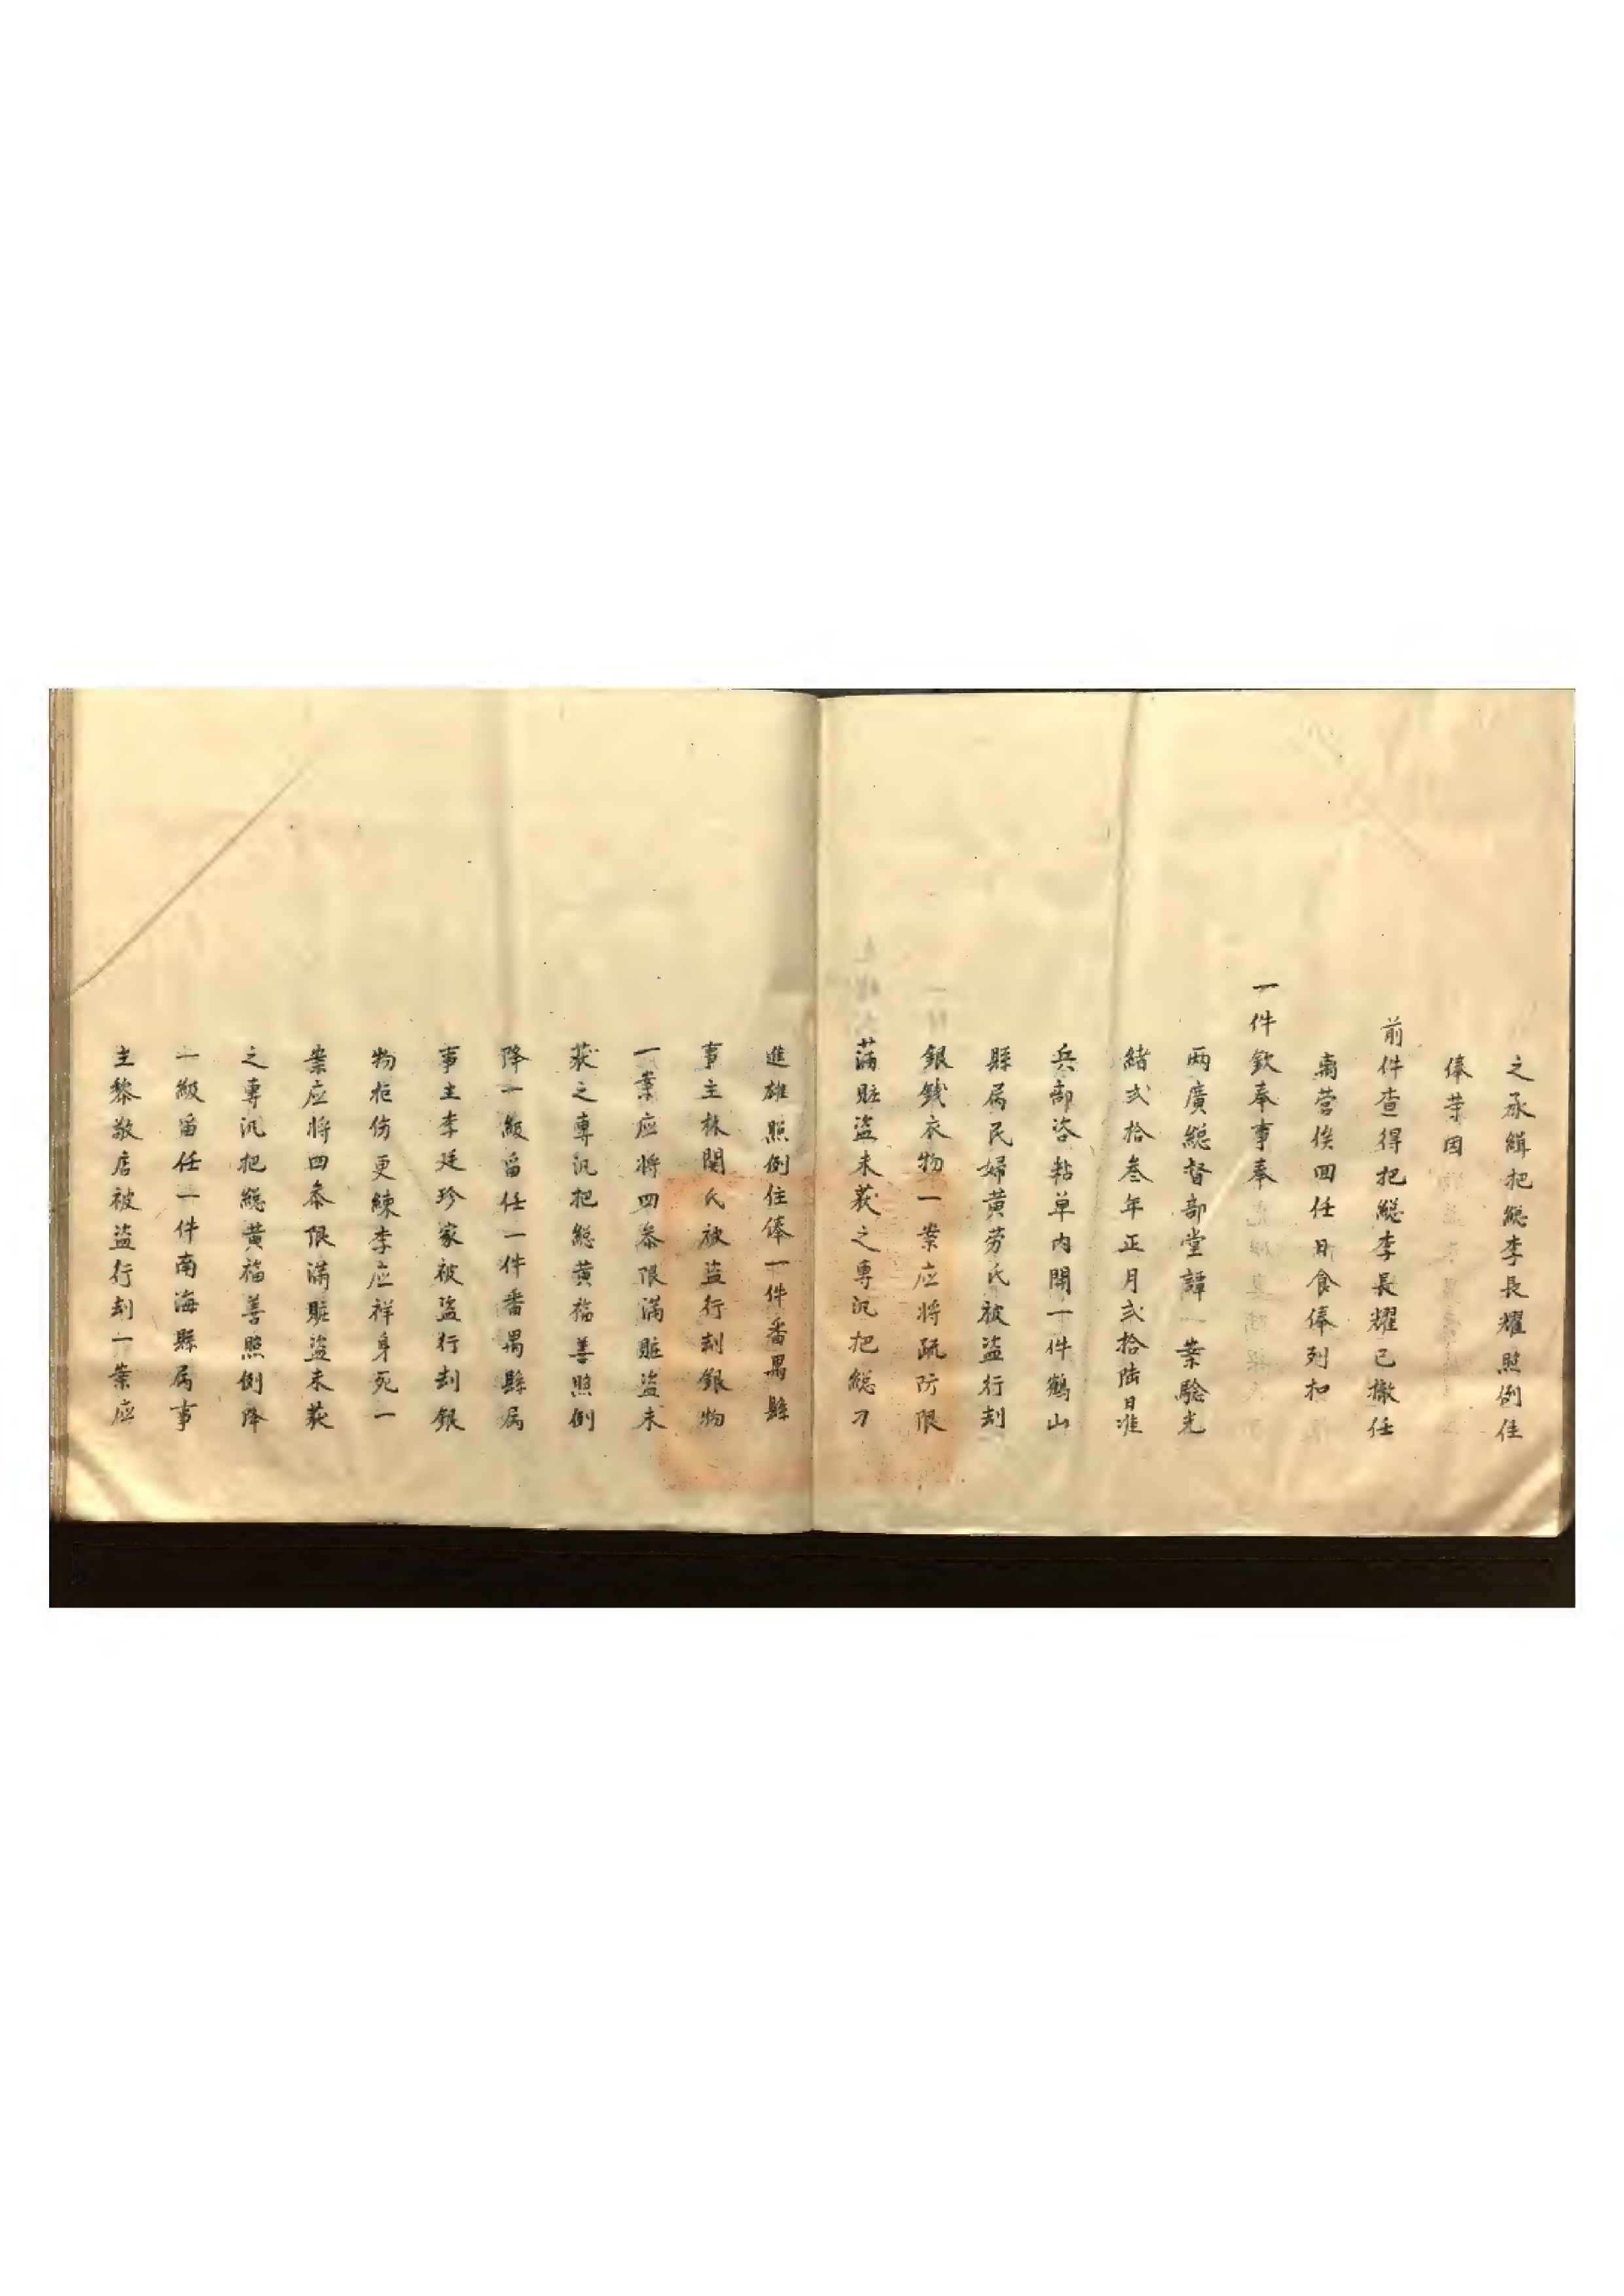 之承緝把総李長耀照例住
俸等因
前件查得把総李長耀已撤任
离营俟回任日食俸列扣
一件欽奉事奉
両廣総督部堂譚一案騐光
緒弍拾叁年正月弍拾陆日准
兵部咨粘单内開一件鶴山
縣属民婦黄劳氏被盗行刦
銀錢衣物一案应将疏防限
滿賍盗未获之專汛把総刁
進雄照例住俸一件番禺縣
事主林関氏被盗行刦銀物
一案应将四叅限滿賍盗未
获之專汛把総黄福善照例
降一級留任一件番禺縣属
事主李廷珍家被盗行刦銀
物拒伤更練李应祥身死一
案应将四叅限滿賍盗未获
之專汛把総黄福善照例降
一級留任一件南海縣属事
主黎敬店被盗行刦一案应